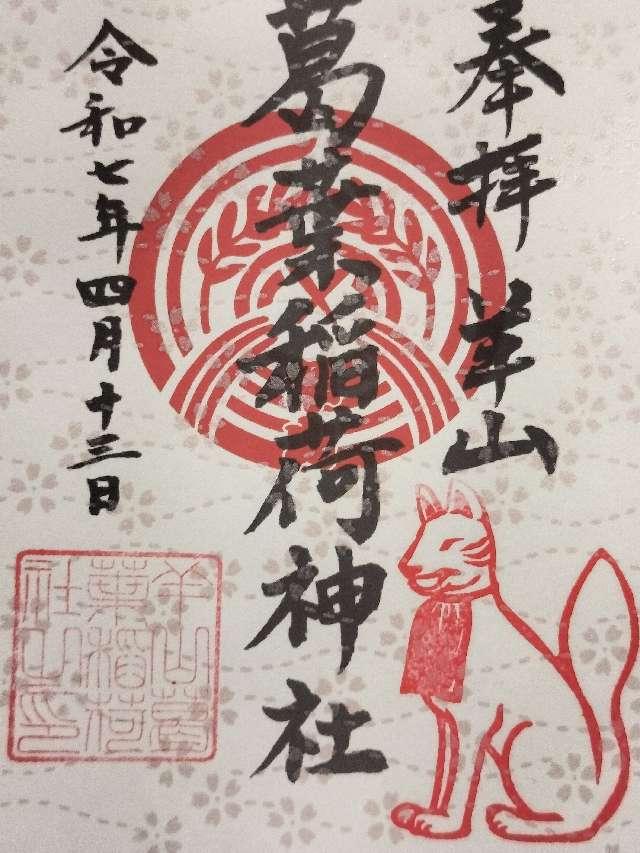 奉拝 羊山
葛葉稲荷神社
令和七年四月十三日
羊山葛
葉稲荷
社山印